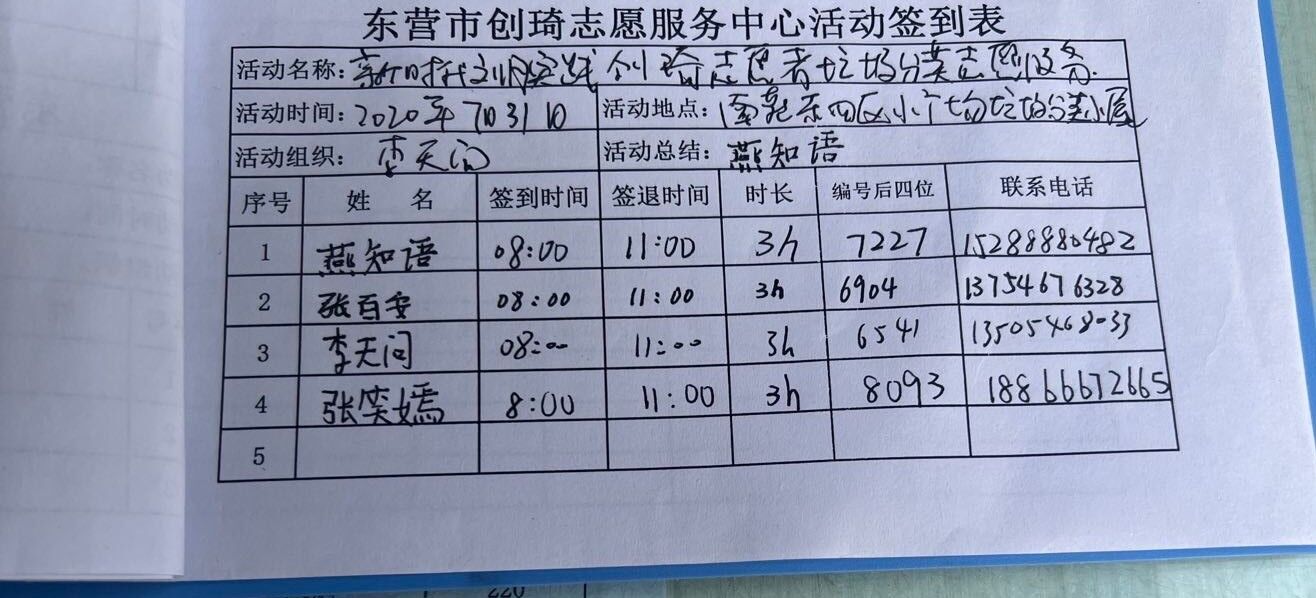 东营市创琦志愿服务中心活动签到表
活动名称：新时代文明实践 创琦志愿者垃圾分类志愿服务
活动时间：2020年7月31日 活动地点：东四区小广场垃圾分类小屋
活动组织：李天问 活动总结：燕知语
序号 姓名 签到时间 签退时间 时长 编号后四位 联系电话
1 燕知语 08:00 11:00 3h 7227 15288880482
2 张百安 08:00 11:00 3h 6904 13754676328
3 李天问 08:00 11:00 3h 6541 13505468033
4 张笑嫣 8:00 11:00 3h 8093 18866672665
5
220